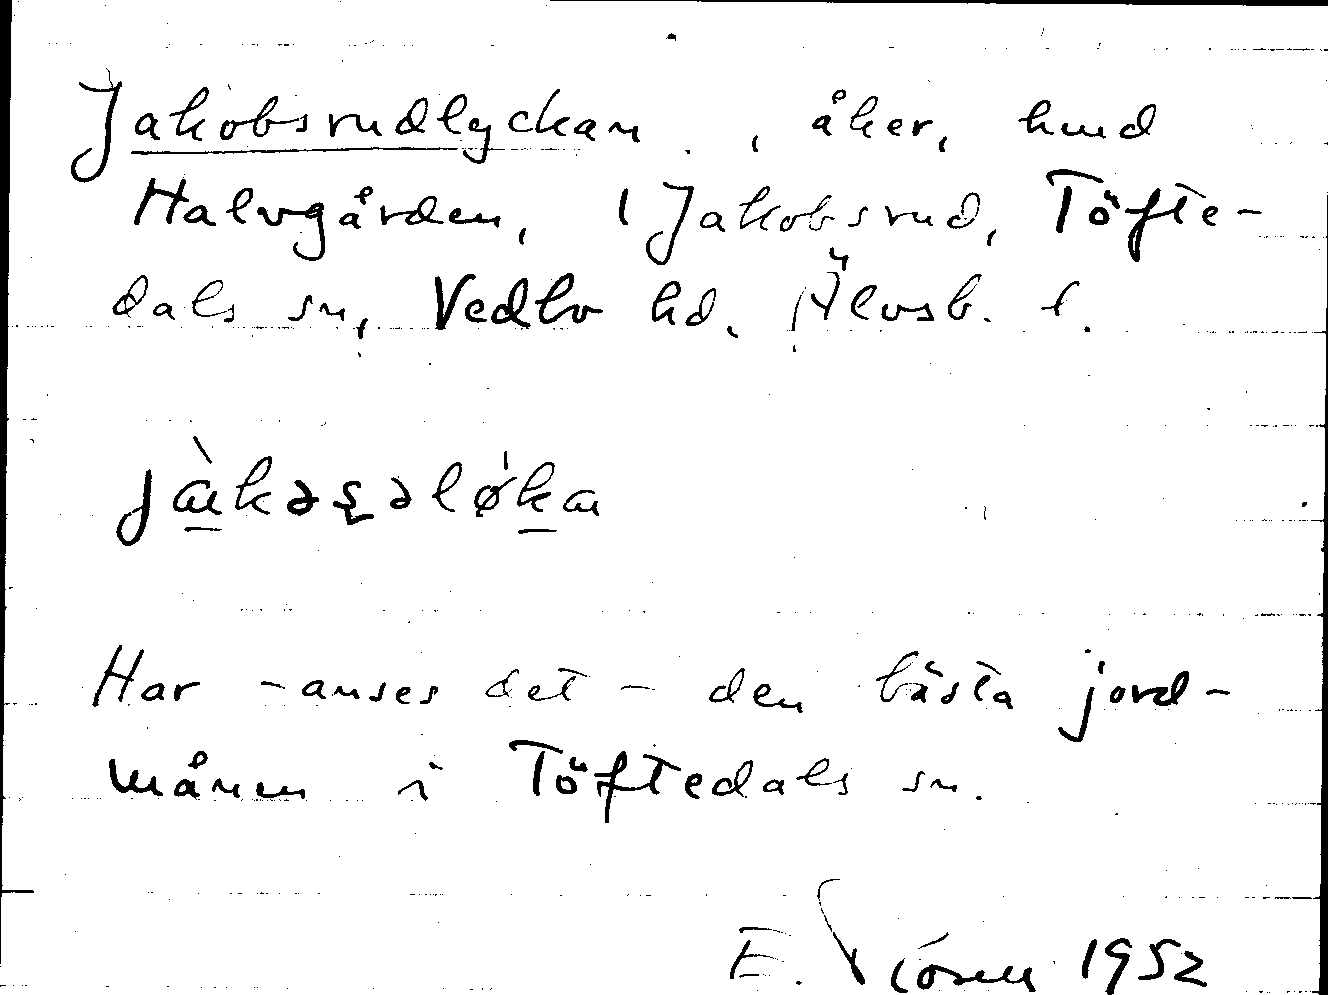 Jakobsrudlyckan, åker, hmd
Halvgården, 1 Jakobsrud, Töfte-
dals sn, Vedbo hd. Älvsb. l.
Har - anses det - den bästa jord-
månen i Töftedals sn.
E. 1952